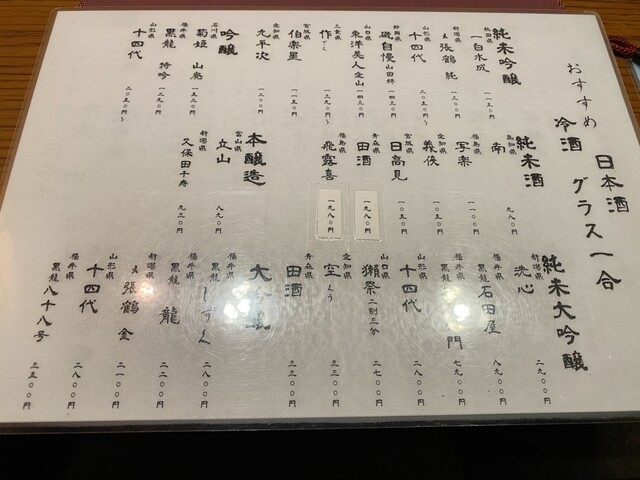 おすすめ 日本酒
冷酒 グラス一合
純米吟醸
秋田県 一白水成 一一五〇円
新潟県 〆張鶴 純
山形県 十四代 二〇五〇円〜
静岡県 磯自慢 山田錦 一四三〇円
山口県 東洋美人 一四三〇円
三重県 作 ざく 一三九〇円
宮城県 伯楽星 一一五〇円
九平次
吟醸
石川県 菊姫 山廃 一五二〇円
福井県 黒龍 特吟 一三九〇円
山形県 十四代 二〇五〇円〜
純米酒
高知県 南 九八〇円
福島県 写楽 一一〇〇円
愛知県 義侠 一〇五〇円
宮城県 日高見 一〇五〇円
青森県 田酒 一九八〇円
福島県 飛露喜 一九八〇円
本醸造
富山県 立山 八九〇円
新潟県 久保田千寿 九三〇円
純米大吟醸
新潟県 洗心 二九〇〇円
福井県 黒龍 石田屋 八九〇〇円
福井県 門 七九〇〇円
山形県 十四代 二八〇〇円
山口県 獺祭 二割三分 二七〇〇円
愛知県 空 くう 三三〇〇円
青森県 田酒 三三〇〇円
大吟醸
福井県 しずく 二八〇〇円
福井県 黒龍 龍 二二〇〇円
新潟県 〆張鶴 金 二一〇〇円
山形県 十四代 二八〇〇円
福井県 黒龍 八十八号 三五〇〇円